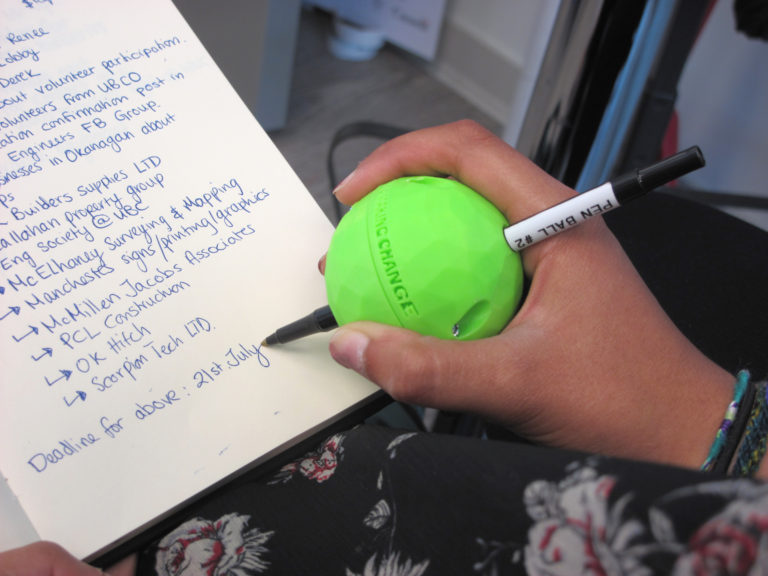 Renee
Derek
about volunteer participation.
volunteers from UBCO
confirmation post in
Engineers FB Group.
in Okanagan about
Builders supplies LTD
Callahan property group
Eng society @ UBC
→ McElhaney Surveying & Mapping
→ Manchester signs/printing/graphics
→ McMillen Jacobs Associates
→ PCL Construction
→ OK Hitch
→ Scorpion Tech LTD.
Deadline for above: 21st July
CHANGE
PEN BALL #2